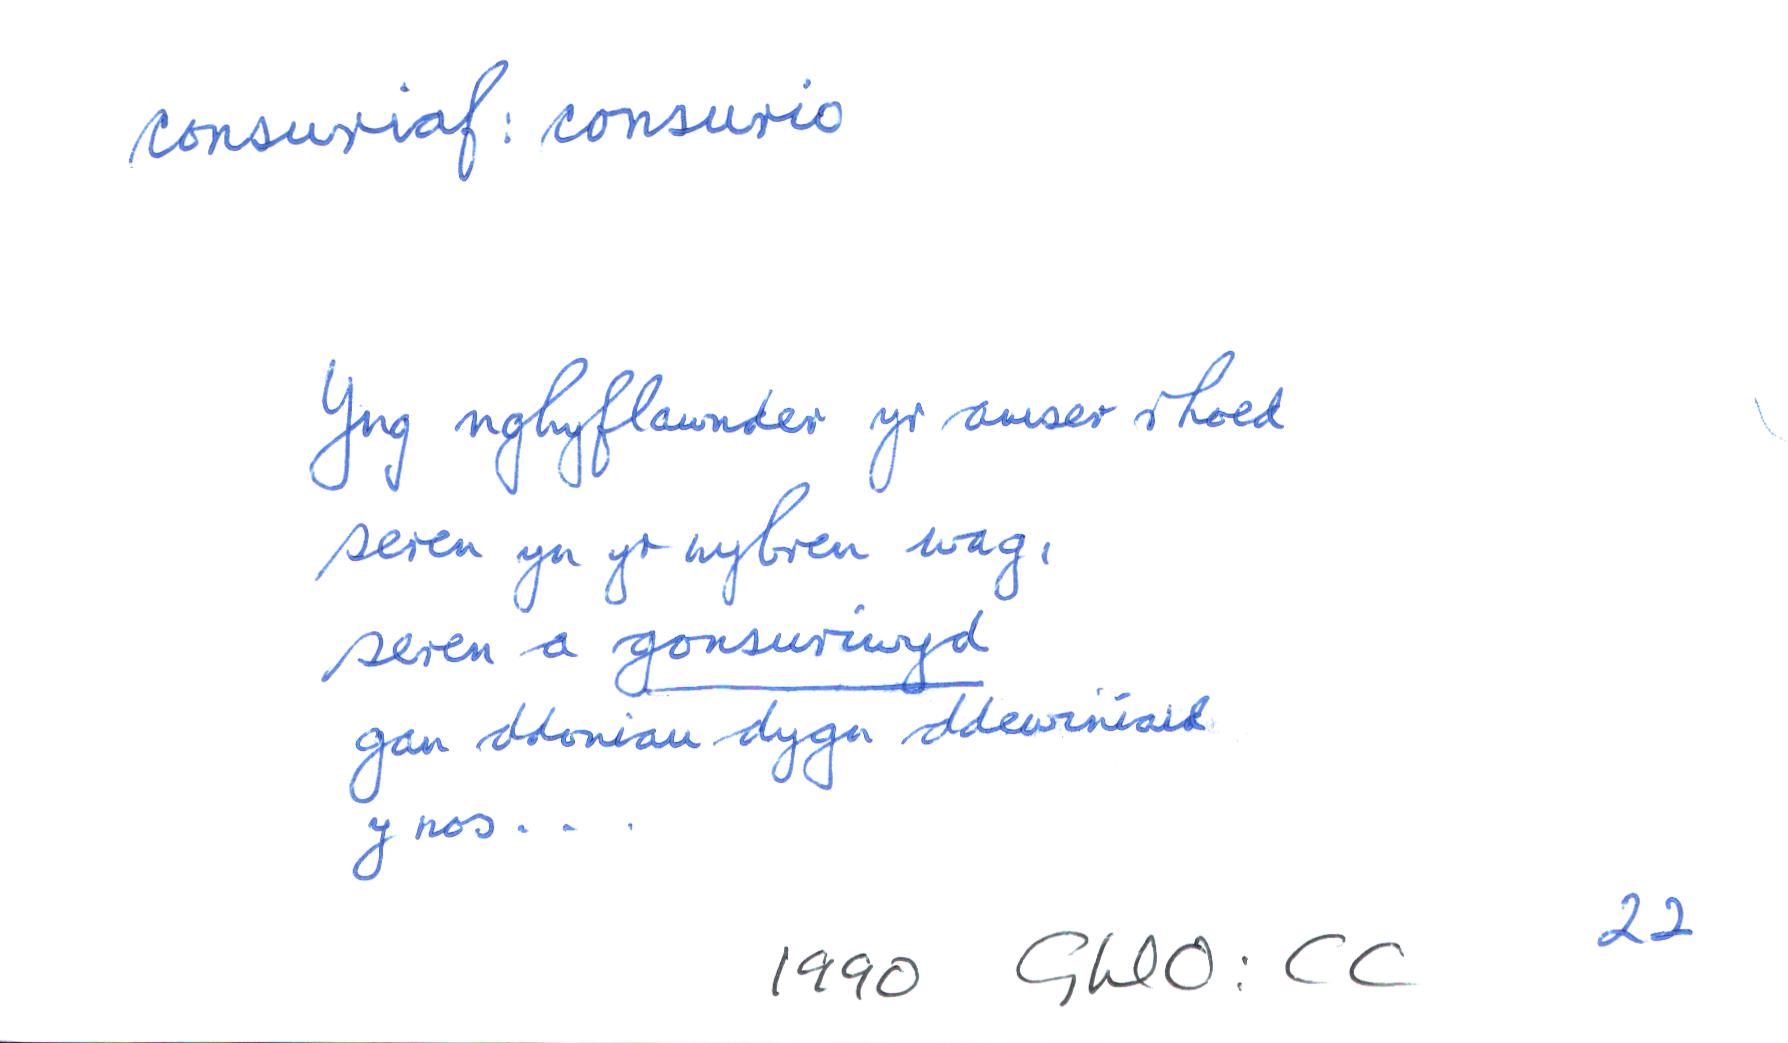 consuriaf: consurio
Yng nghyflawnder yr amser rhoed
seren yn yr wybren wag,
seren a gonsuriwyd
gan ddoniau dygn ddewiniaid
y nos . . .
22
1990 GWO: CC